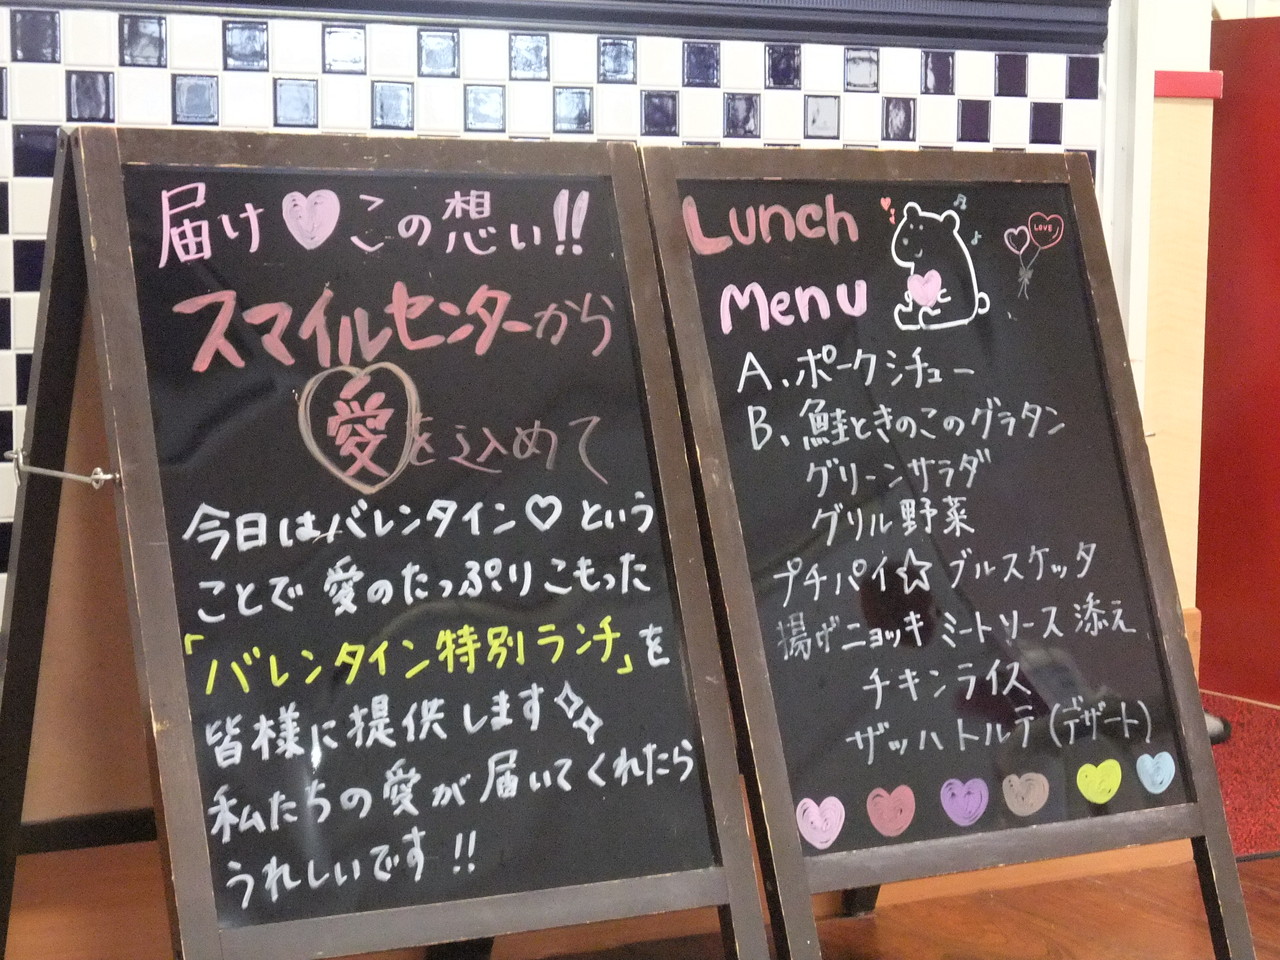 届け♡この想い!!
スマイルセンターから
愛を込めて
今日はバレンタイン♡という
ことで愛のたっぷりこもった
「バレンタイン特別ランチ」を
皆様に提供します
私たちの愛が届いてくれたら
うれしいです!!
Lunch
Menu
LOVE
A、ポークシチュー
B、鮭ときのこのグラタン
グリーンサラダ
グリル野菜
プチパイ☆ブルスケッタ
揚げニョッキ ミートソース添え
チキンライス
ザッハトルテ(デザート)